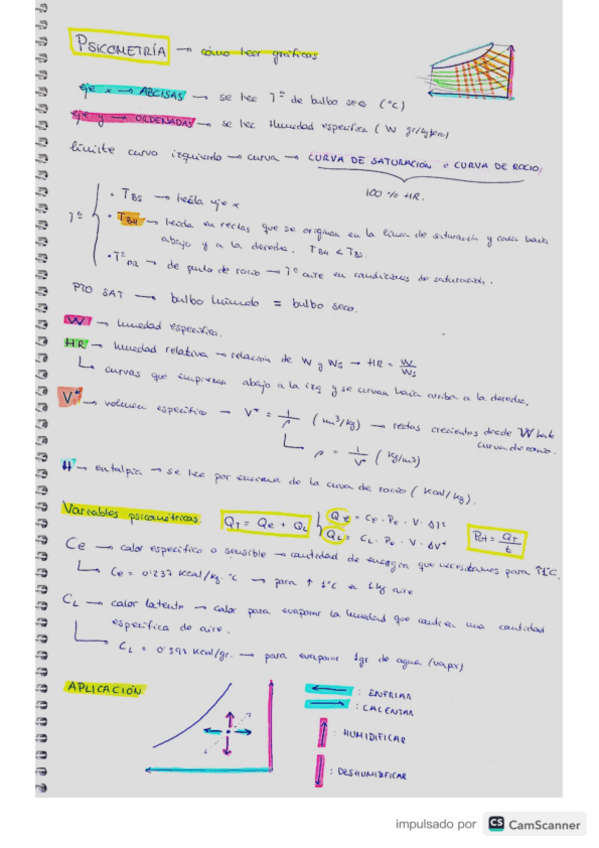 PSICOMETRÍA → cómo leer gráficos
eje x → ABCISAS → se lee Tª de bulbo seco (°C)
eje y → ORDENADAS → se lee Humedad específica (W gr/kg
límite curvo izquierdo → curva → CURVA DE SATURACIÓN o CURVA DE ROCIO/
100 % HR.
Tª
• TBS → leída eje x
• TBH → leída en rectas que se originan en la línea de saturación y caen hacia
abajo y a la derecha. TBH < TBS.
• Tª PR → de punto de rocío → Tª aire en condiciones de saturación.
PTO SAT → bulbo húmedo = bulbo seco.
W → humedad específica.
HR → humedad relativa → relación de W y Ws → HR = W/Ws
↳ curvas que empiezan abajo a la izq y se curvan hacia arriba a la derecha.
V* → volumen específico → V* = 1/ρ (m³/kg) → rectas crecientes desde W hasta
curva de rocío.
↳ ρ = 1/V* (kg/m³)
H → entalpía → se lee por encima de la curva de rocío (kcal/kg).
Variables psicométricas. QT = Qe + QL
Qe = Ce · Pe · V · ΔTª
QL = CL · Pe · V · ΔV*
Pot = QT/t
Ce → calor específico o sensible → cantidad de energía que necesitamos para ↑1°C.
↳ Ce = 0'237 kcal/kg·°C → para ↑ 1°C a 1kg aire
CL → calor latente → calor para evaporar la humedad que una cantidad
específica de aire.
↳ CL = kcal/gr. → para evaporar 1gr de agua (vapor)
APLICACIÓN
← : ENFRIAR
→ : CALENTAR
↑ : HUMIDIFICAR
↓ : DESHUMIDIFICAR
impulsado por CS CamScanner